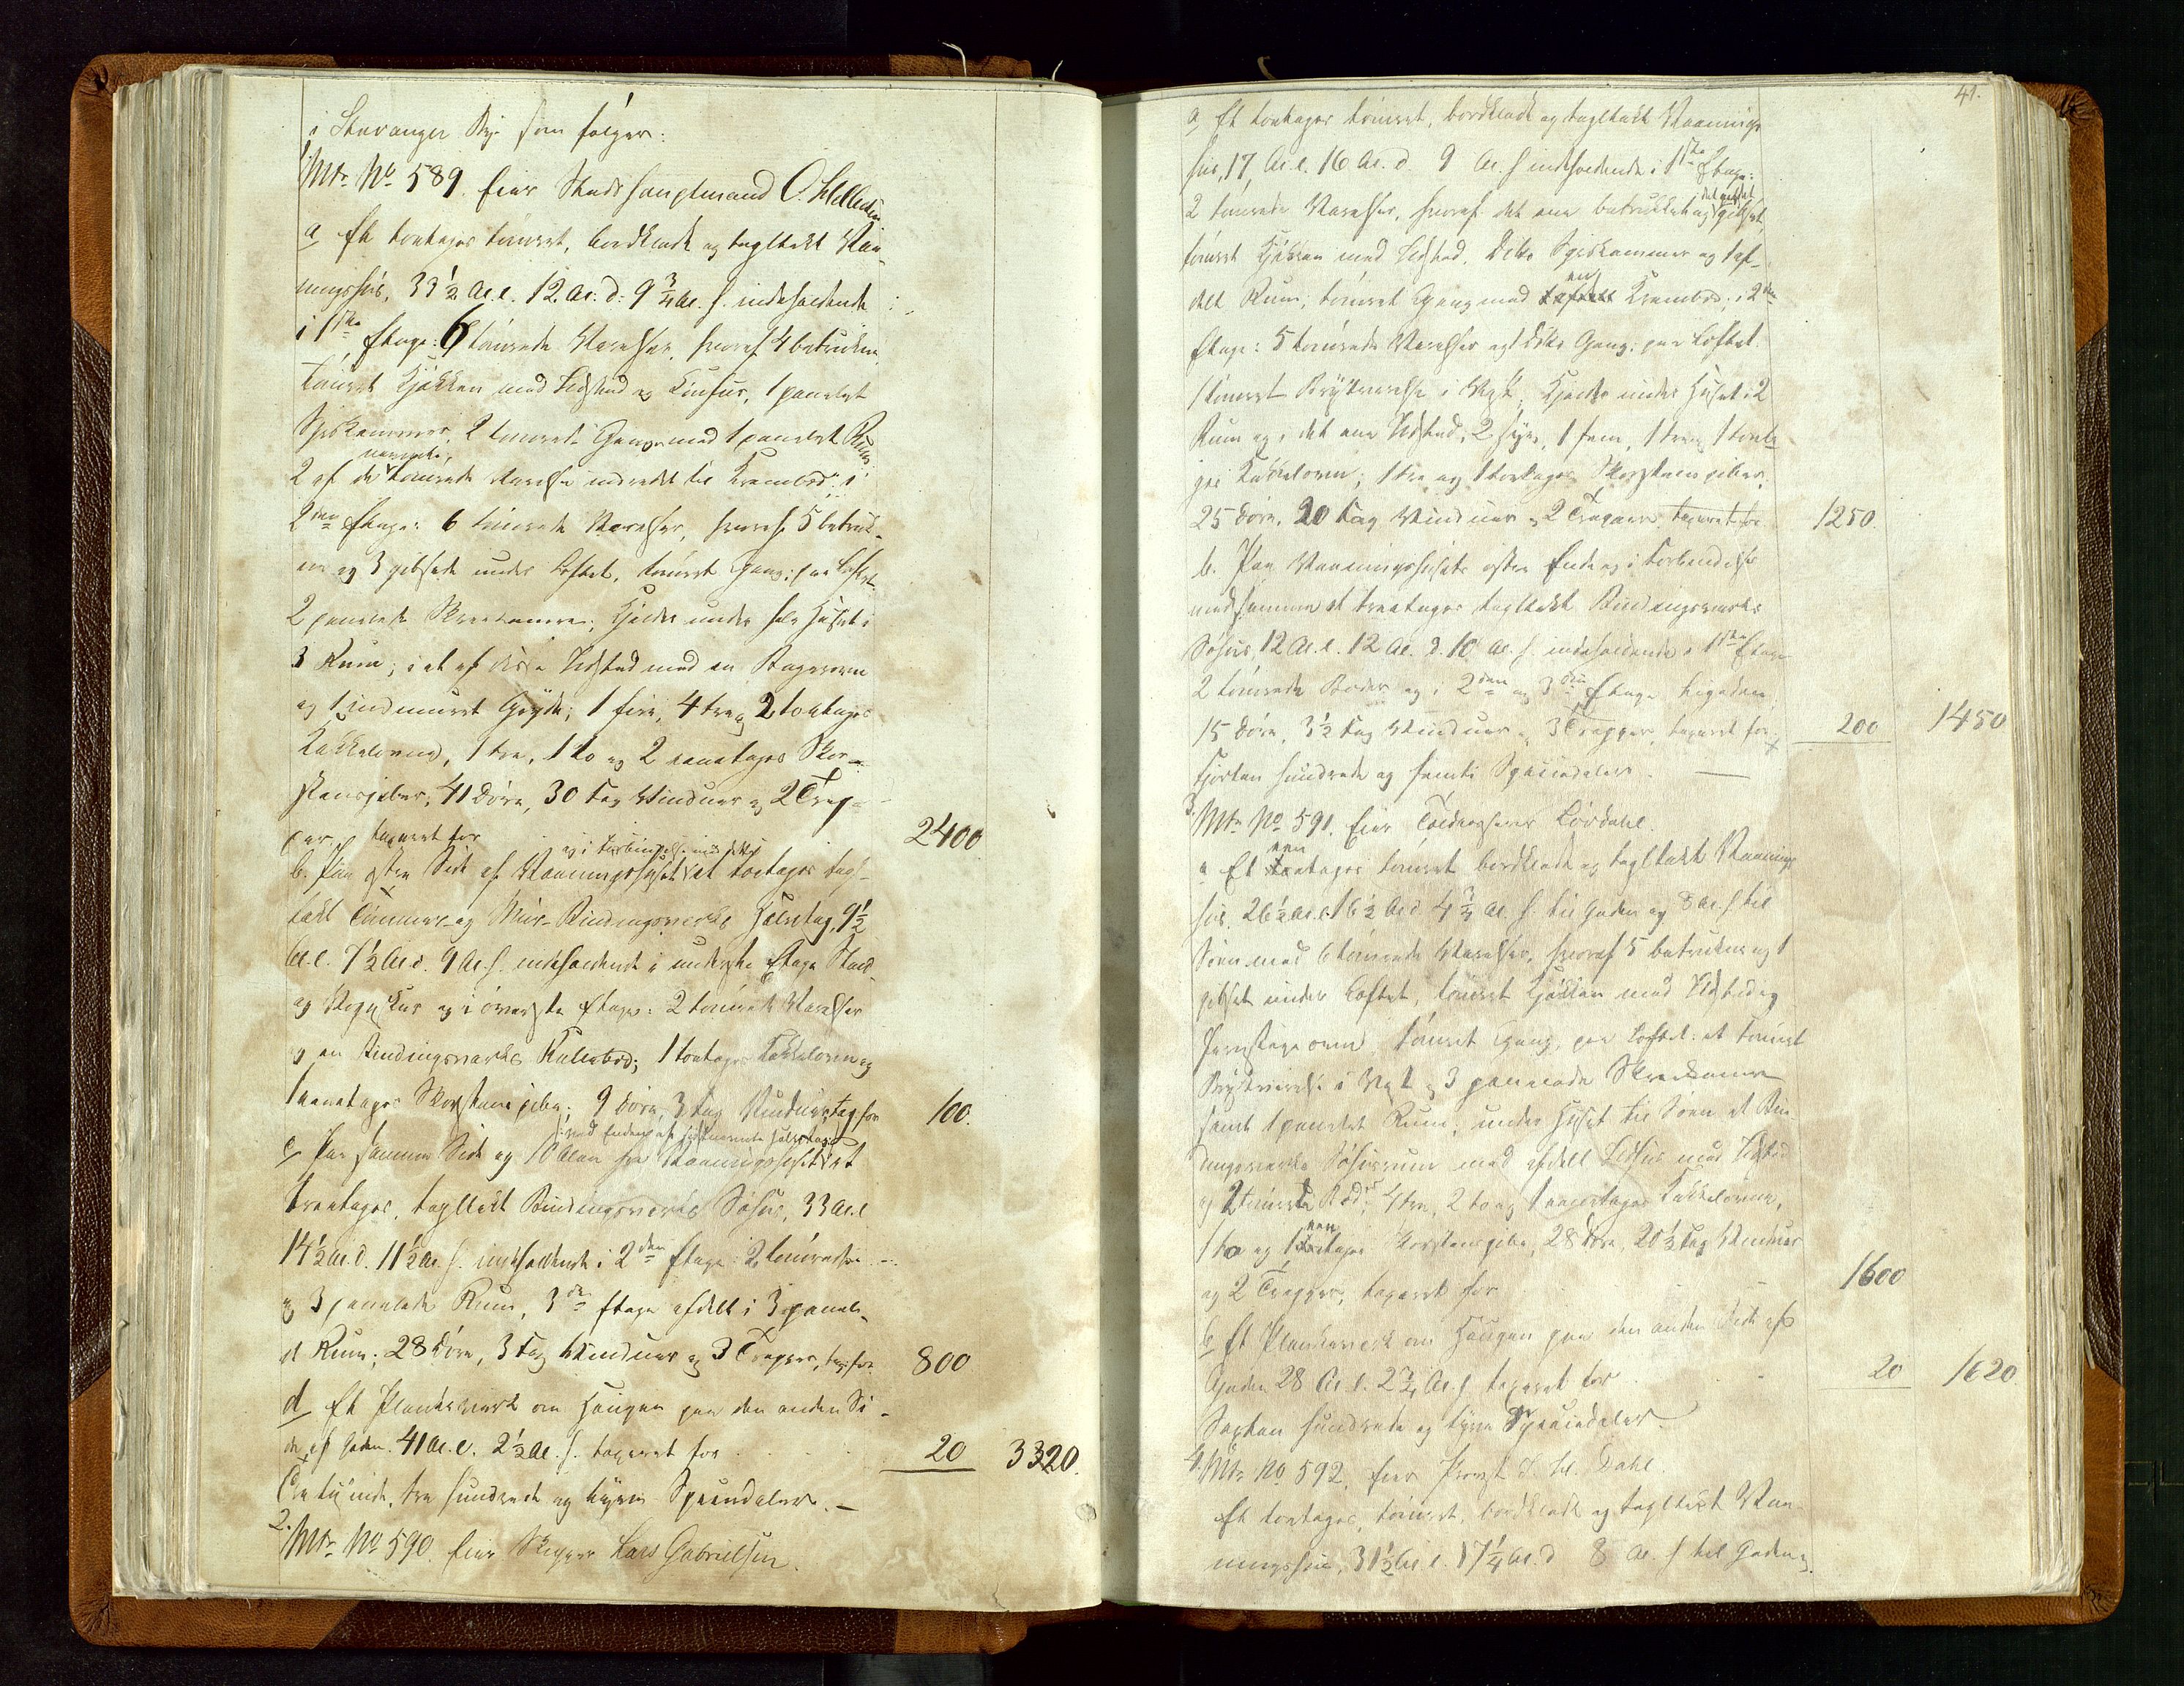 i Stavanger By som følger:
1. Mtr. No 589. Eier Stadshauptmand O. Helliesen
a, Et toetages tømret, bordklædt og tagltækt Vaa-
ningshus, 33½ Al. l. 12 Al. d. 9¾ Al. h. indeholdende
i 1ste Etage: 6 tømrede Værelser, hvoraf 4 betrukne,
tømret Kjøkken med Ildsted og , 1 panelet
Spiskammer, 2 tømrede Gange med 1 panelet Rum,
2 af de nævnte tømrede Værelser indredet til Krambod; i
2den Etage: 6 tømrede Værelser, hvoraf 5 betruk-
ne og 3 gibsede under Loftet, tømret Gang; paa Loftet
2 panelede Skraakamre; Kjelder under hele Huset i
3 Rum; i et af disse Ildsted med en Bagerovn
og 1 indmuret Gryde; 1 fire, 4 tre og 2 toetages
Kakkelovne, 1 tre, 1 to og 2 eenetages Skor-
stenspiber, 41 Døre, 30 Fag Vinduer og 2 Trap-
per, taxeret for 2400
b. Paa østre Side af Vaaningshuset og i Forbindelse med dette et toetages tagl-
tækt Tømmer- og Muur-Bindingsværks Halvtag, 9½
Al. l. 7½ Al. d. 9 Al. h. indeholdende i underste Etage Stald
og og i øverste Etage: 2 tømrede Værelser
og en Bindingsværks Rullebod; 1 toetages Kakkelovn og
1 eenetages Skorstenspibe; 9 Døre, 3 Fag Vinduer, tax for 100.
c, Paa samme Side og 10 Alen fra Vaaningshuset ved Enden af sidstnævnte Halvtag et
treetages, tagltækt Bindingsværks Søhus, 33 Al. l.
14½ Al. d. 11½ Al. h. indeholdende i 2den Etage: 2 tømrede
og 3 panelede Rum, 3die Etage afdelt i 3 panele-
de Rum; 28 Døre, 3 Fag Vinduer og 3 Trapper, tax for 800
d, Et Plankeværk om Haugen paa den anden Si-
de af Gaden. 41 Al. l. 2½ Al. h. taxeret for 20 3320.
Tre tusinde, tre hundrede og tyve Speciedaler. –
2. Mtr. No 590. Eier Skipper Lars Gabrielsen.
41.
a, Et toetages tømret, bordklædt og tagltækt Vaanings-
hus, 17 Al. l. 16 Al. d. 9 Al. h. indeholdende i 1ste Etage:
2 tømrede Værelser, hvoraf det ene betrukket og det andet gibset,
tømret Kjøkken med Ildsted, ditto Spiskammer og 1 af-
delt Rum, tømret Gang med en Krambod; i 2den
Etage: 5 tømrede Værelser og 1 ditto Gang; paa Loftet
1 tømret Brystværelse i Vest; Kjelder under Huset i 2
Rum og i det ene Ildsted; 2 fyr, 1 fem, 1 tre og 1 toeta-
ges Kakkelovn; 1 tre og 1 toetages Skorstenspiber,
25 Døre, 20 Fag Vinduer og 2 Trapper, taxeret for 1250.
b. Paa Vaaningshusets østre Ende og i Forbindelse
med samme et treetages tagltækt Bindingsværks
Søhus, 12 Al. l. 12 Al. d. 10 Al. h. indeholdende i 1ste Etage
2 tømrede Boder og i 2den og 3die Etage ligedan;
15 Døre, 3½ Fag Vinduer og 3 Trapper, taxeret for 200 1450
Fjorten hundrede og femti Speciedaler. –
3. Mtr. No 591. Eier Toldkasserer Løvdahl.
a, Et eenetages tømret bordklædt og tagltækt Vaanings-
hus, 26½ Al. l. 16½ Al. d. 4¾ Al. h. til Gaden og 8 Al. h. til
Søen med 6 tømrede Værelser, hvoraf 5 betrukne og 1
gibset under Loftet, tømret Kjøkken med Ildsted og
, tømret Gang, paa Loftet et tømret
Brystværelse i Vest og 3 panelede Skraakamre
samt 1 panelet Rum; under Huset til Søen et Bin-
dingsværks Søhuusrum med afdelt med Ildsted
og 2 tømrede Boder; 4 tre, 2 to og 1 eenetages Kakkelovne,
1 to og 1 eenetages Skorstenspibe, 28 Døre, 20½ Fag Vinduer
og 2 Trapper, taxeret for 1600
b, Et Plankeværk om Haugen paa den anden Side af
Gaden 28 Al. l. 2¾ Al. h. taxeret for 20 1620
Sexten hundrede og tyve Speciedaler.
4. Mtr. No 592. Eier Provst Dahl.
Et toetages, tømret, bordklædt og tagltækt Vaa-
ningshus, 31½ Al. l. 17¼ Al. d. 8 Al. h. til Gaden og